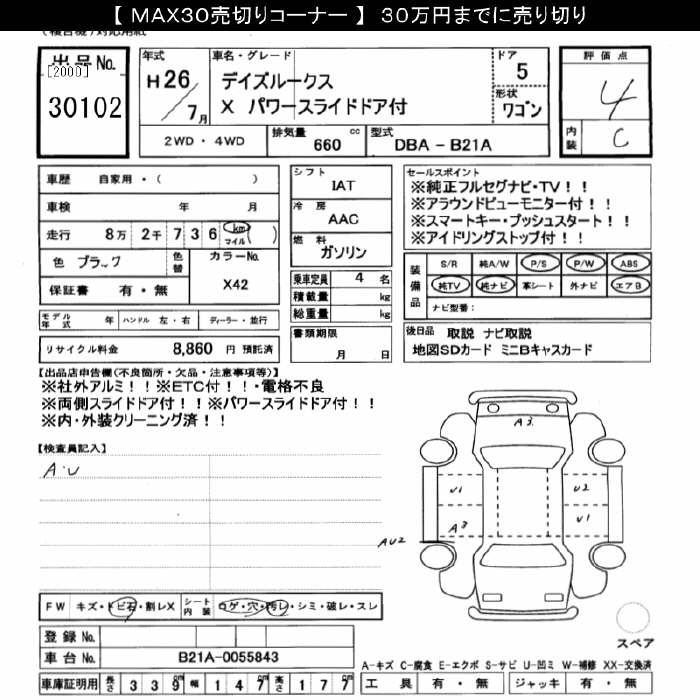 【 MAX30売切りコーナー 】 30万円までに売り切り
(複合機)対応用紙
出品No.
[2000]
30102
年式
H26/7月
車名・グレード
デイズルークス
X パワースライドドア付
ドア
5
形状
ワゴン
評価点
4
内装
C
2WD・4WD
排気量 660 cc
型式 DBA - B21A
車歴 自家用・( )
車検 年 月
走行 8万 2千 7 3 6 km マイル )
色 ブラック 色替 カラーNo. X42
保証書 有・無
モデル年式 年 ハンドル 左・右 ディーラー・並行
リサイクル料金 8,860 円 預託済
シフト
IAT
冷房
AAC
燃料
ガソリン
乗車定員 4 名
積載量 kg
総重量 kg
書類期限
月 日
セールスポイント
※純正フルセグナビ・TV!!
※アラウンドビューモニター付!!
※スマートキー・プッシュスタート!!
※アイドリングストップ付!!
装備品
S/R 純A/W P/S P/W ABS
純TV 純ナビ 革シート 外ナビ エアB
ナビ型番:
後日品 取説 ナビ取説
地図SDカード ミニBキャスカード
【出品店申告欄(不良箇所・欠品・注意事項等)】
※社外アルミ!!※ETC付!!・電格不良
※両側スライドドア付!!※パワースライドドア付!!
※内・外装クリーニング済!!
【検査員記入】
A・U
A3
U1
U2
A3
U1
AU2
FW キズ・トビ石・割レX シート内装 コゲ・穴・汚レ・シミ・破レ・スレ
登録No.
車台No. B21A-0055843
スペア
A-キズ C-腐食 E-エクボ S-サビ U-凹ミ W-補修 XX-交換済
車庫証明用 長さ 3 3 9 幅 1 4 7 高さ 1 7 7
工具 有・無 ジャッキ 有・無